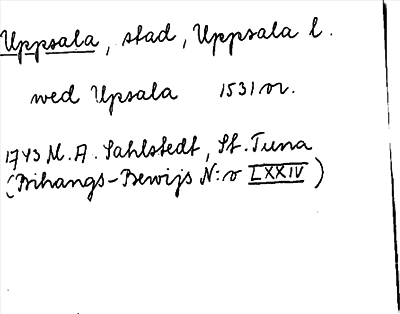 Uppsala, stad, Uppsala l.
wed Upsala 1531 or.
1743 M. A. Sahlstedt, St. Tuna
(Bihangs-Bewijs N:o LXXIV)